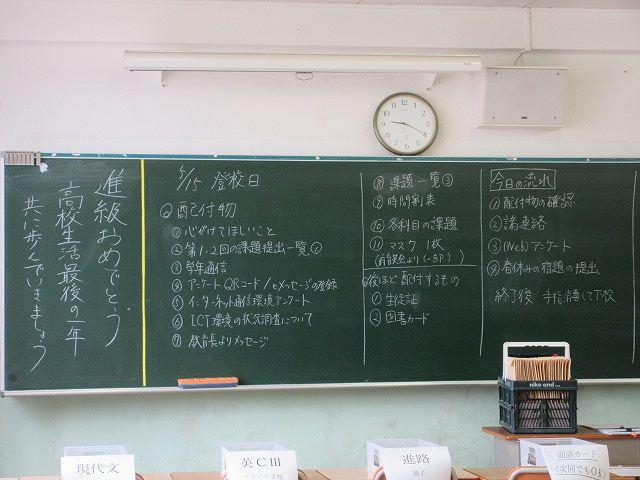 進級おめでとう
高校生活最後の一年
共に歩んでいきましょう
5/15 登校日
◎配付物
① 心がけてほしいこと
② 第1・2回の課題提出一覧①
③ 学年通信
④ アンケートQRコード/eメッセージの登録
⑤ インターネット通信環境アンケート
⑥ ICT環境の状況調査について
⑦ 教育長よりメッセージ
⑧ 課題一覧②
⑨ 時間割表
⑩ 各科目の課題
⑪ マスク 1枚
◎後ほど配付するもの
① 生徒証
② 図書カード
今日の流れ
① 配付物の確認
② 諸連絡
③ (Web)アンケート
④ 春休みの宿題の提出
終了後 手指消毒して下校
niko and ...
現代文
英CⅢ
プリント2枚
進路
冊子
面談カード
(次回でもOK)